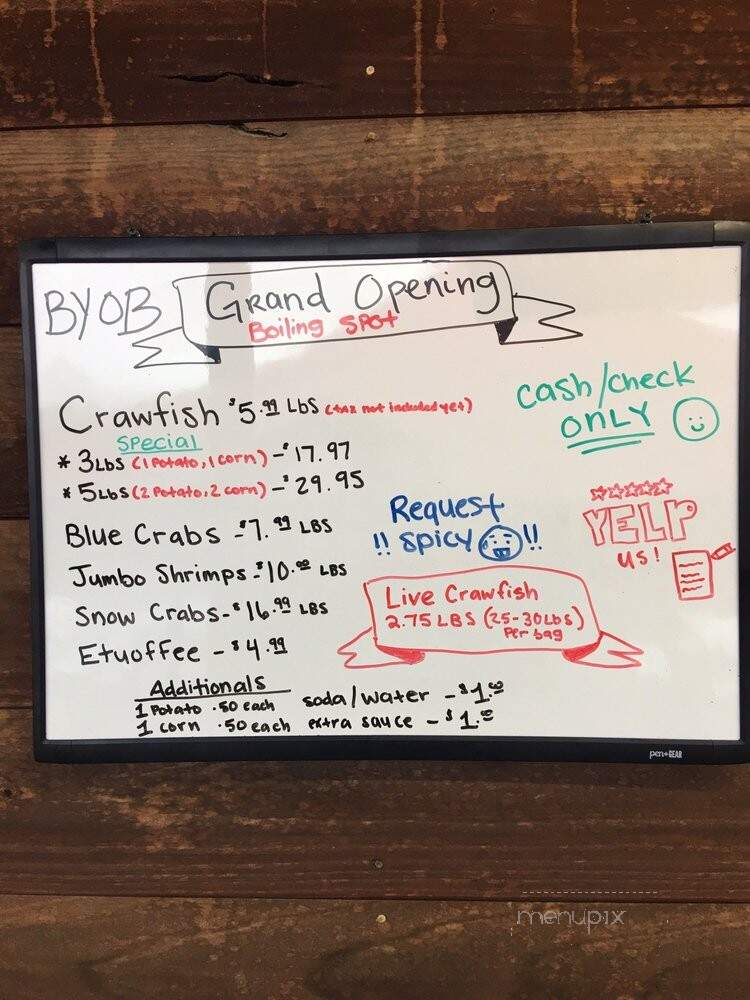 BYOB Grand Opening
Boiling Spot
Crawfish $5.99 LBS (tax not included yet)
Special
* 3 LBS (1 Potato, 1 corn) - $17.97
* 5 LBS (2 Potato, 2 corn) - $29.95
Blue Crabs - $7.99 LBS
Jumbo Shrimps - $10.00 LBS
Snow Crabs - $16.99 LBS
Etuoffee - $4.99
cash/check
ONLY
Request
!! spicy !!
YELP
us!
Live Crawfish
2.75 LBS (25-30Lbs)
Per bag
Additionals
1 Potato .50 each
1 corn .50 each
soda/water - $1.00
extra sauce - $1.00
pen+GEAR
menupix